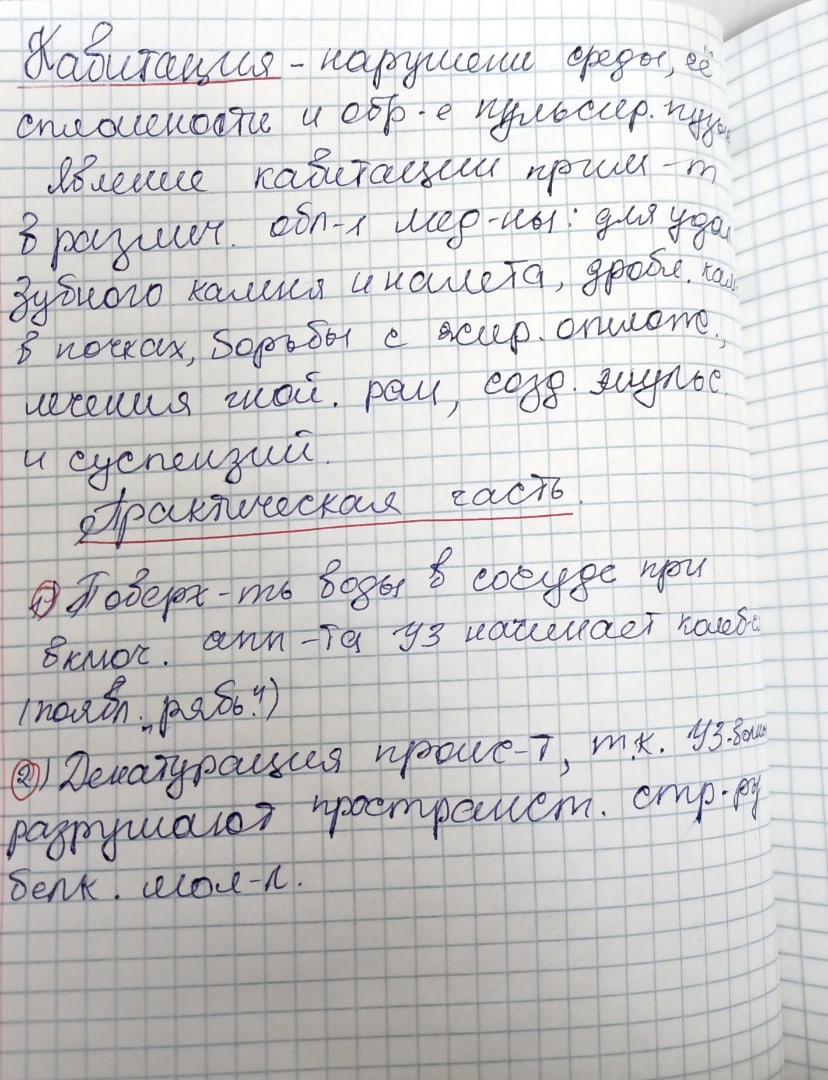 Кавитация - нарушени среды, её
сплошности и обр-е пульсир. пузы
явление кавитации прим-т
в различ. обл-х мед-ны: для уда
зубного камня и налета, дробл. кам
в почках, борьбы с жир. отлож.,
лечения гной. ран, созд. эмульс.
и суспензий.
Практическая часть.
1) Поверх-ть воды в сосуде при
включ. апп-та УЗ начинает колеб-с
(появл. „рябь")
2) Денатурация проис-т, т.к. УЗ-волны
разрушают пространст. стр-ру
белк. мол-л.